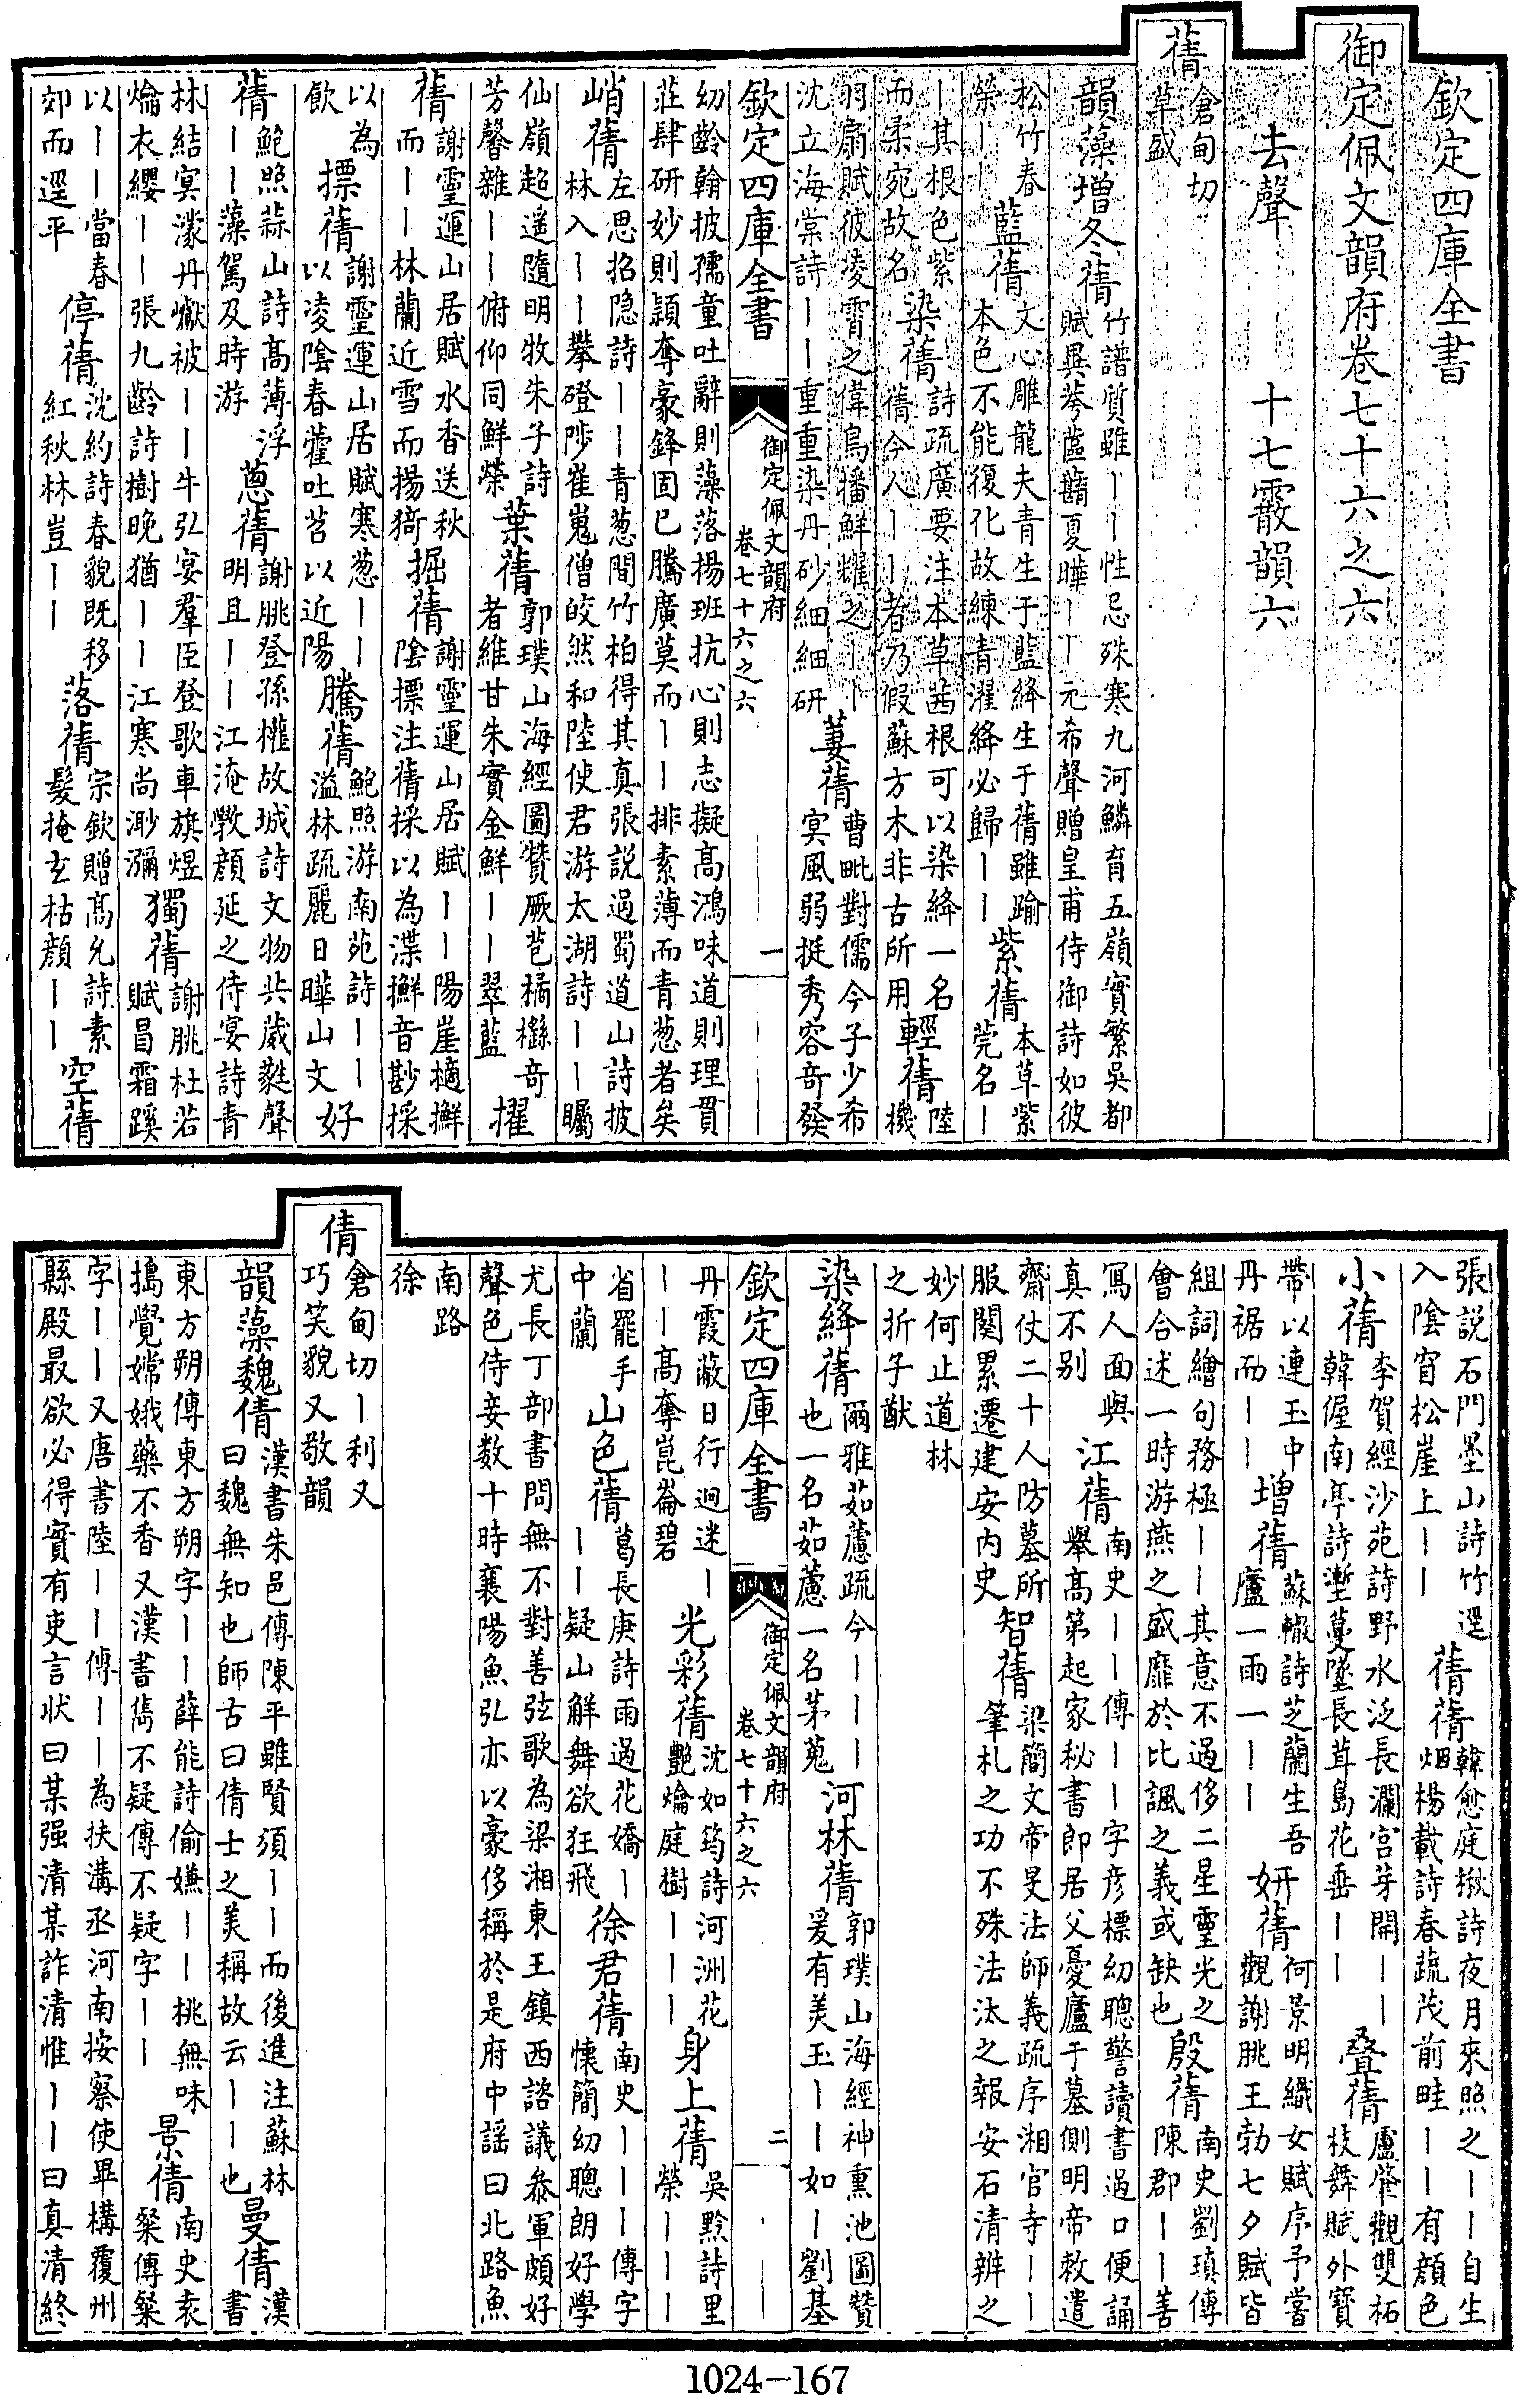 欽定四庫全書
御定佩文韻府卷七十六之六
去聲　十七霰韻六
蒨倉甸切草盛
韻藻增冬蒨竹譜質雖丨丨性忌殊寒九河鱗育五嶺實繁吳都賦異荂蓲蘛夏曄丨丨元希聲贈皇甫侍御詩如彼
松竹春榮丨丨藍蒨文心雕龍夫青生于藍絳生于蒨雖踰本色不能復化故練青濯絳必歸丨丨紫蒨本草紫莞名丨
丨其根色紫而柔宛故名染蒨詩疏廣要注本草茜根可以染絳一名蒨今人丨丨者乃假蘇方木非古所用輕蒨陸機
羽扇賦彼凌霄之偉鳥播鮮耀之丨丨沈立海棠詩丨丨重重染丹砂細細研萋蒨曹毗對儒今子少希冥風弱挺秀容奇發
欽定四庫全書　御定佩文韻府卷七十六之六　一
幼齡翰披孺童吐辭則藻落揚班抗心則志擬高鴻味道則理貫莊肆研妙則穎奪豪鋒固已騰廣莫而丨丨排素薄而青葱者矣
峭蒨左思招隱詩丨丨青葱間竹柏得其真張説過蜀道山詩披林入丨丨攀磴陟崔嵬僧皎然和陸使君游太湖詩丨丨矚
仙嶺超遥隨明牧朱子詩芳馨雜丨丨俯仰同鮮榮葉蒨郭璞山海經圖贊厥苞橘櫾奇者維甘朱實金鮮丨丨翠藍擢
蒨謝靈運山居賦水香送秋而丨丨林蘭近雪而揚猗掘蒨謝靈運山居賦丨丨陽崖擿陰摽注蒨採以為渫音勘採
以為飲摽蒨謝靈運山居賦寒葱丨丨以凌陰春藿吐苕以近陽騰蒨鮑照游南苑詩丨丨溢林疏麗日曄山文好
蒨鮑照蒜山詩高薄浮丨丨藻駕及時游葱蒨謝朓登孫權故城詩文物共葳蕤聲明且丨丨江淹斅顔延之侍宴詩青
林結冥濛丹巘被丨丨牛弘宴羣臣登歌車旗煜爚衣纓丨丨張九齡詩樹晚猶丨丨江寒尚渺瀰獨蒨謝朓杜若賦昌霜蹊
以丨丨當春郊而逕平停蒨沈約詩春貌既移紅秋林豈丨丨落蒨宗欽贈高允詩素髮掩玄枯顔丨丨空蒨
張説石門墨山詩竹逕入陰窅松崖上丨丨蒨蒨韓愈庭楸詩夜月來照之丨丨自生烟楊載詩春蔬茂前畦丨丨有顔色
小蒨李賀經沙苑詩野水泛長瀾宫芽開丨丨韓偓南亭詩塹蔓墜長茸島花垂丨丨叠蒨盧肇觀雙柘枝舞賦外寶
帶以連玉中丹裾而丨丨增蒨蘇轍詩芝蘭生吾廬一雨一丨丨妍蒨何景明織女賦序予嘗觀謝朓王勃七夕賦皆
組詞繪句務極丨丨其意不過侈二星靈光之會合述一時游燕之盛靡於比諷之義或缺也殷蒨南史劉瑱傳陳郡丨丨善
寫人面與真不别江蒨南史丨丨傳丨丨字彦標幼聰警讀書過口便誦舉高第起家秘書郎居父憂廬于墓側明帝敕遣
齋仗二十人防墓所服闋累遷建安内史智蒨梁簡文帝旻法師義疏序湘官寺丨丨筆札之功不殊法汰之報安石清辨之
妙何止道林之折子猷
染絳蒨爾雅茹藘疏今丨丨丨也一名茹藘一名茅蒐河林蒨郭璞山海經神熏池圖贊爰有美玉丨丨如丨劉基
欽定四庫全書　御定佩文韻府卷七十六之六　二
丹霞蔽日行迥迷丨丨丨高奪崑崙碧光彩蒨沈如筠詩河洲花艶爚庭樹丨丨丨身上蒨吳黔詩里榮丨丨丨
省罷手中蘭山色蒨葛長庚詩雨過花嬌丨丨丨疑山解舞欲狂飛徐君蒨南史丨丨丨傳字懷簡幼聰朗好學
尤長丁部書問無不對善弦歌為梁湘東王鎮西諮議叅軍頗好聲色侍妾数十時襄陽魚弘亦以豪侈稱於是府中謡曰北路魚
南路徐
倩倉甸切丨利又巧笑貌又敬韻
韻藻魏倩漢書朱邑傳陳平雖賢須丨丨而後進注蘇林曰魏無知也師古曰倩士之美稱故云丨丨也曼倩漢書
東方朔傳東方朔字丨丨薛能詩偷嫌丨丨桃無味搗覺嫦娥藥不香又漢書雋不疑傳不疑字丨丨景倩南史袁粲傳粲
字丨丨又唐書陸丨丨傳丨丨為扶溝丞河南按察使畢構覆州縣殿最欲必得實有吏言状曰某强清某詐清惟丨丨曰真清終
1024-167